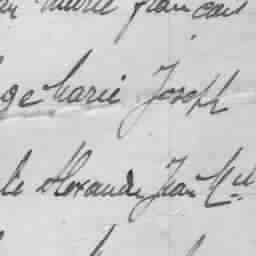 Marie francois
ge Marie Joseph
le Alexandre Jean M